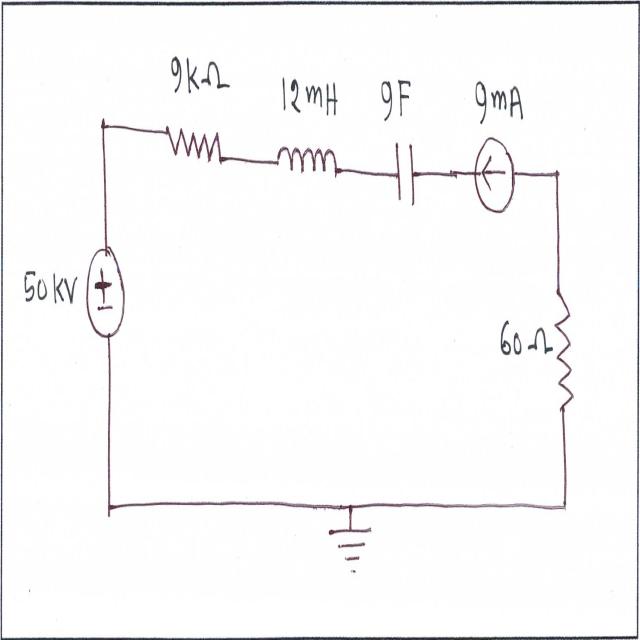 9KΩ
12mH
9F
9mA
50KV
+
−
60Ω